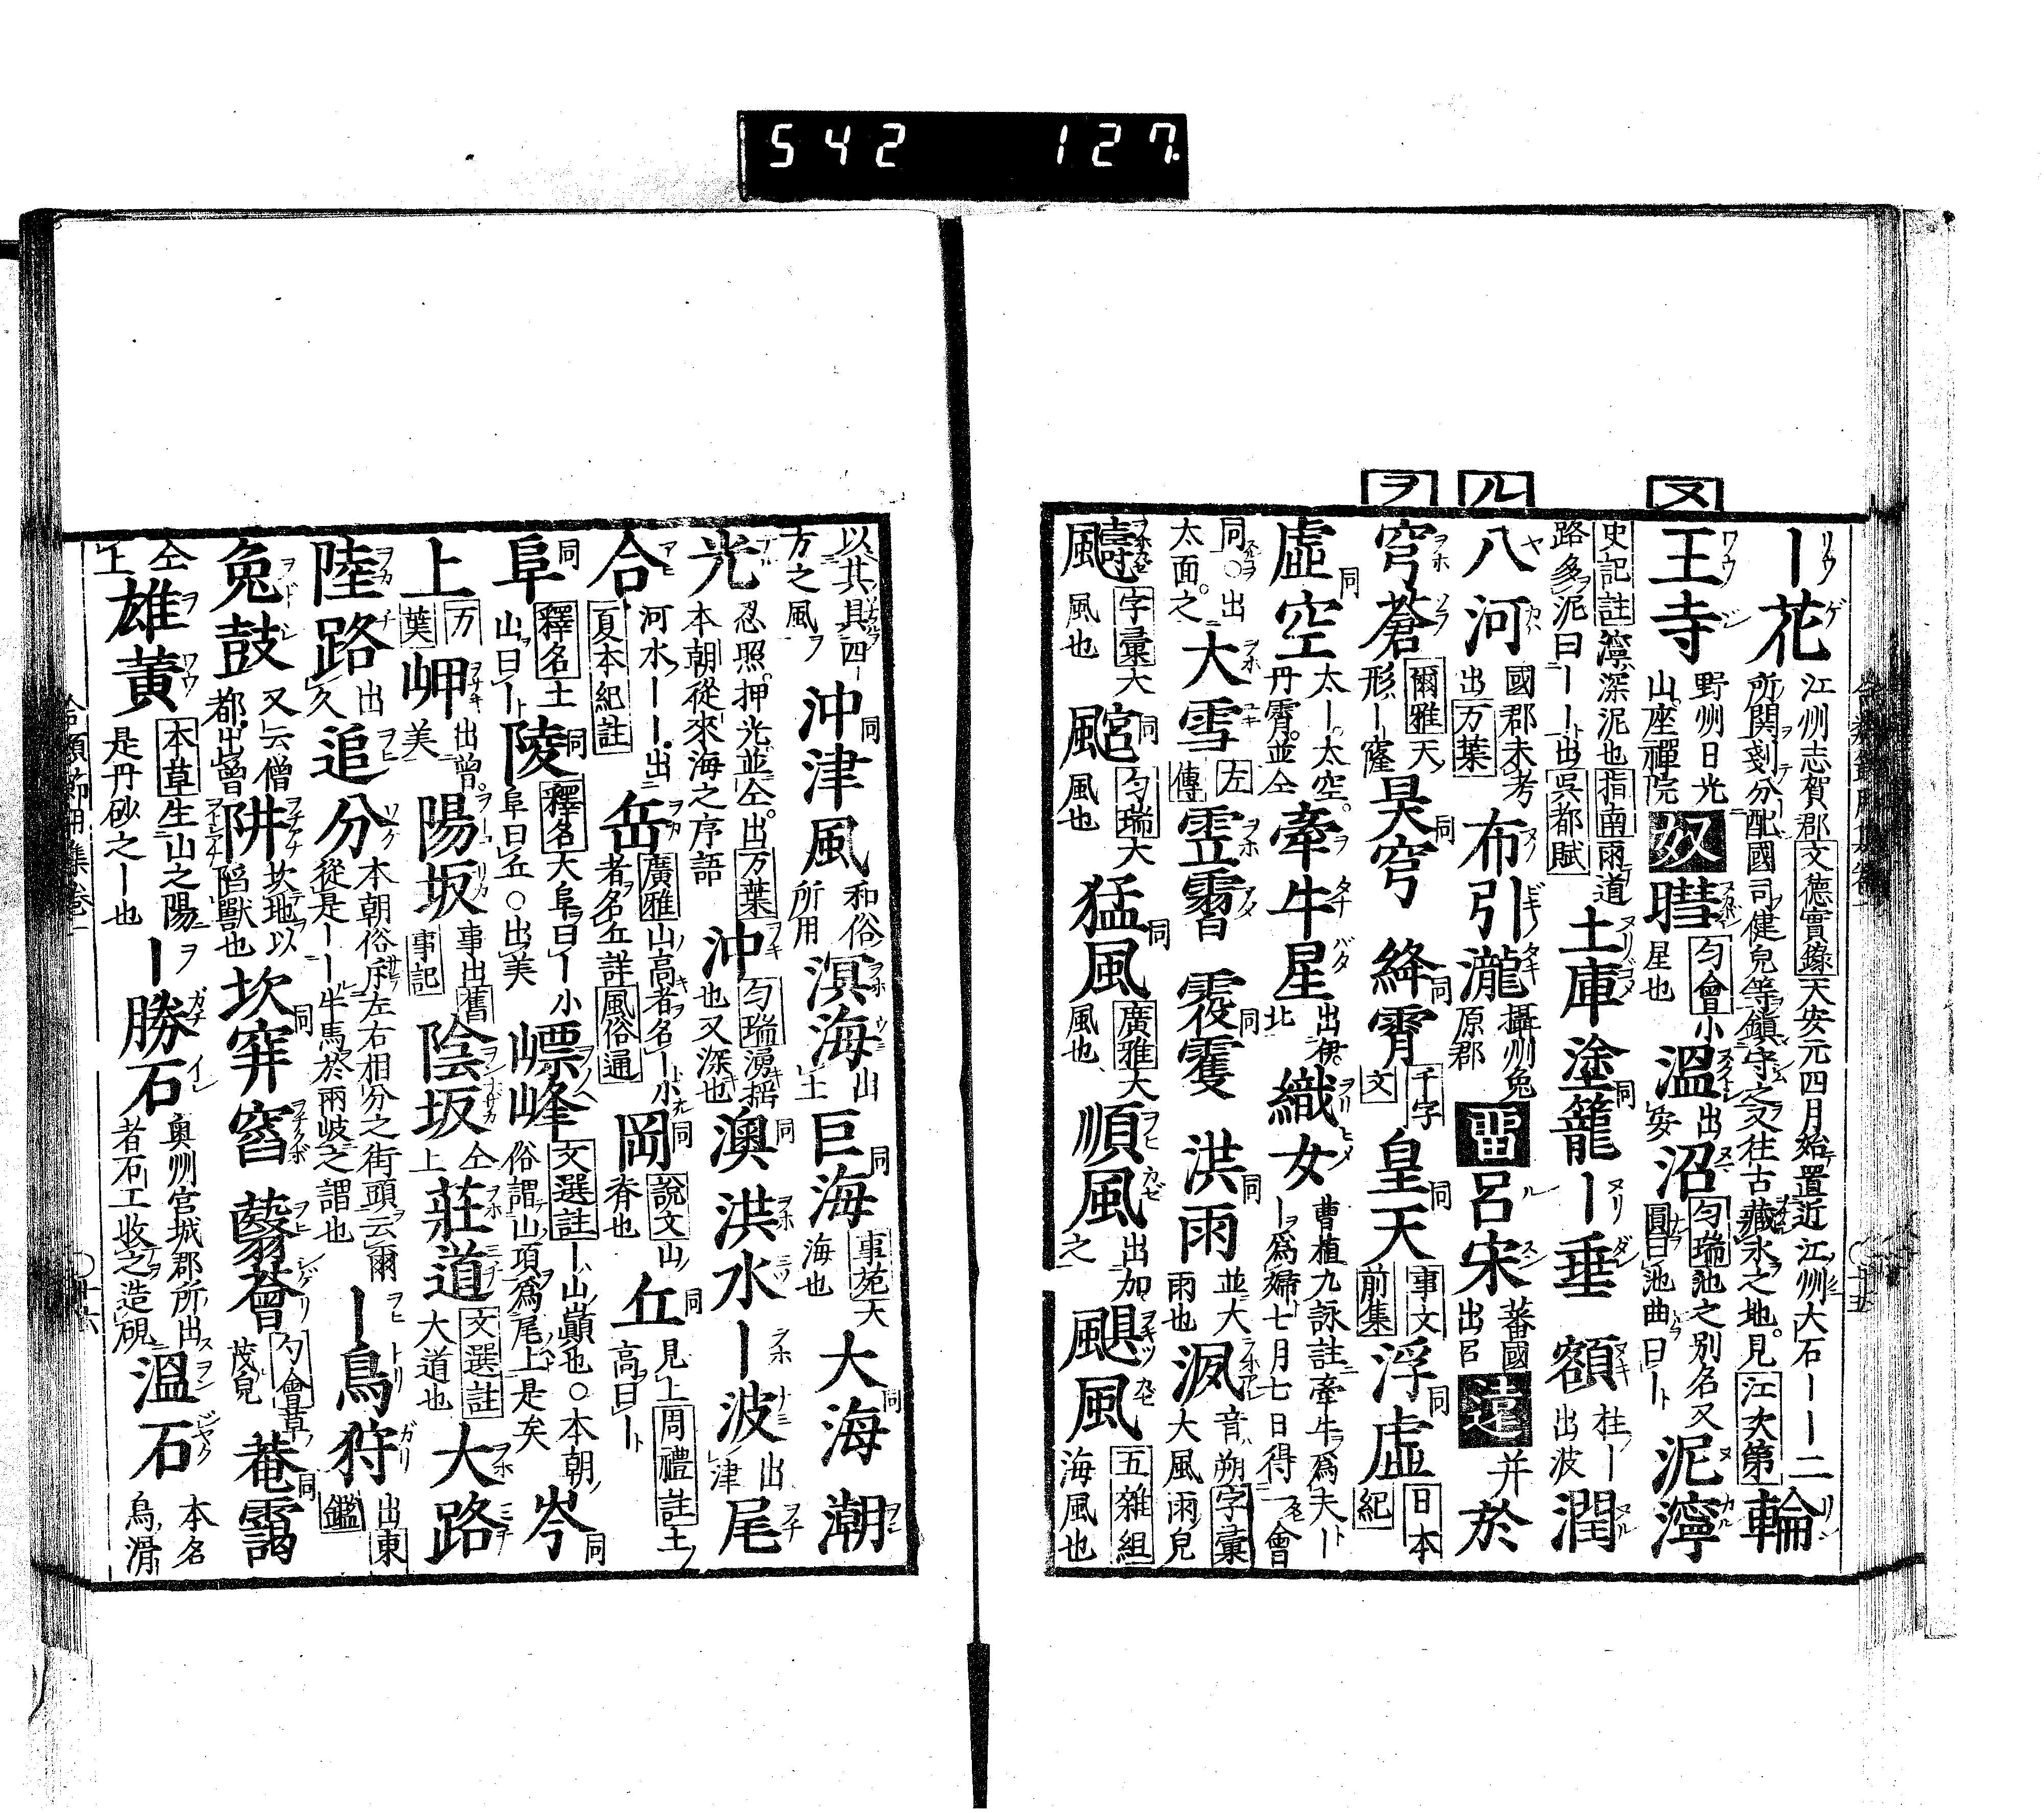 542 127
ヌ
ル
ヲ
｜花 江州志賀郡文德實錄天安元四月始置近江州大石｜｜二
所関剗分配國司健兒等鎮守之又往古藏氷之地見江次第 輪
王寺 野州日光
山座禪院 奴 暳 匀會小
星也 溫 出
安 沼 匀瑞池之別名又
圓曰池曲曰｜ 泥濘
史記註濘深泥也指南雨道
路多泥曰｜｜出吳都賦 土庫 塗籠 同 ｜垂 額 柱｜
出波 潤
八河 國郡未考
出万葉 布引瀧 攝州兔
原郡 留 呂宋 蕃國
出呂 遠 并 於
穹蒼 爾雅天
形｜窿 昊穹 同 絳霄 同 千字
文 皇天 同 事文
前集 浮虛 同 日本
紀
虛空 同 太｜太空
丹霄並仝 牽牛星 出伊
北 織女 曹植九詠註牽牛爲夫｜
｜爲婦七月七日得一會
同○出
太面之 大雪 左
傳 雲霫 霚䨥 同 洪雨 同 並大
雨也 颫 音朔字彙
大風雨皃
颹 字彙大
風也 颮 同 匀瑞大
風也 猛風 同 廣雅大
風也 順風 出加
之 颶風 五雜組
海風也
以其具四｜
方之風 沖津風 同 和俗
所用 溟海 出
土 巨海 同 事苑天
海也 大海 同 潮
光 忍照押光並仝出万葉
本朝從來海之序語 沖 匀瑞湧搖
也又深也 澳 同 洪水 ｜波 出
津 尾
合 河水｜｜出
夏本紀註 岳 廣雅山高者名｜小
者名丘詳風俗通 岡 同 說文山
脊也 丘 同 見上周禮註土
高曰｜
阜 同 釋名土
山曰｜ 陵 同 釋名大阜曰｜小
阜曰丘○出美 嶂峰 文選註｜山巔也○本朝
俗謂山頂爲尾上是矣 岑 同
上 万
葉 岬 出曾
美 陽坂 事出舊
事記 陰坂 仝
上 莊道 文選註
大道也 大路
陸路 出
久 追分 本朝俗斥左右相分之街頭云爾
從是｜｜牛馬於兩岐之謂也 ｜鳥狩 出東
鑑
兔鼓 又云僧
都出曾 阱 坎地以
陷獸也 坎穽 同 窞 蘙薈 匀會草
茂皃 菴靄 同
仝
上 雄黃 本草生山之陽
是丹砂之｜也 ｜勝石 奥州宮城郡所出
者石工收之造硯 溫石 本名
烏滑